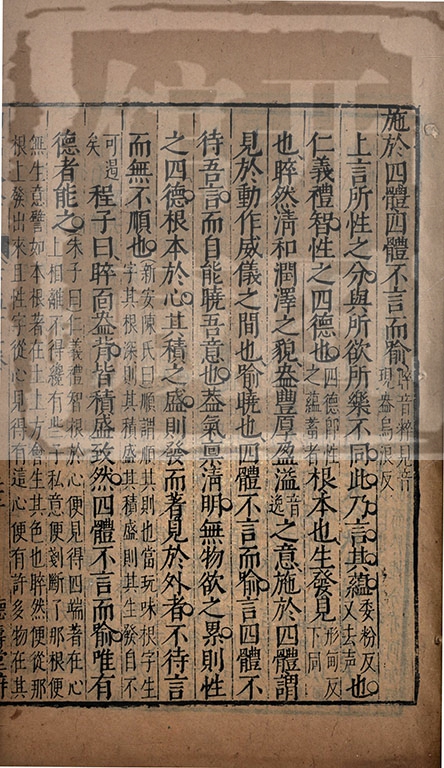 施於四體四體不言而喻睟音粹見音現盎烏浪反
上言所性之分與所欲所樂不同此乃言其蘊委粉反又去声也
仁義禮智性之四德也四德郎性之蘊蓄者根本也生發見形甸反下同
也睟然清和潤澤之貌盎豐厚盈溢音逸之意施於四體謂
見於動作威儀之間也喻曉也四體不言而喻言四體不
待吾言而自能曉吾意也蓋氣稟清明無物欲之累則性
之四德根本於心其積之盛則發而著見於外者不待言
而無不順也新安陳氏曰順謂順其則也當玩味根字生字其根深則其積盛其積盛則其生發自不
可遏矣程子曰睟面盎背皆積盛致然四體不言而喻唯有
德者能之朱子曰仁義禮智根於心便見得四端著在心上相離不得纔有些子私意便剗斷了那根便
無生意譬如木根著在土上方會生其色也睟然便從那根上發出來且性字從心見得有這心便有許多物在其